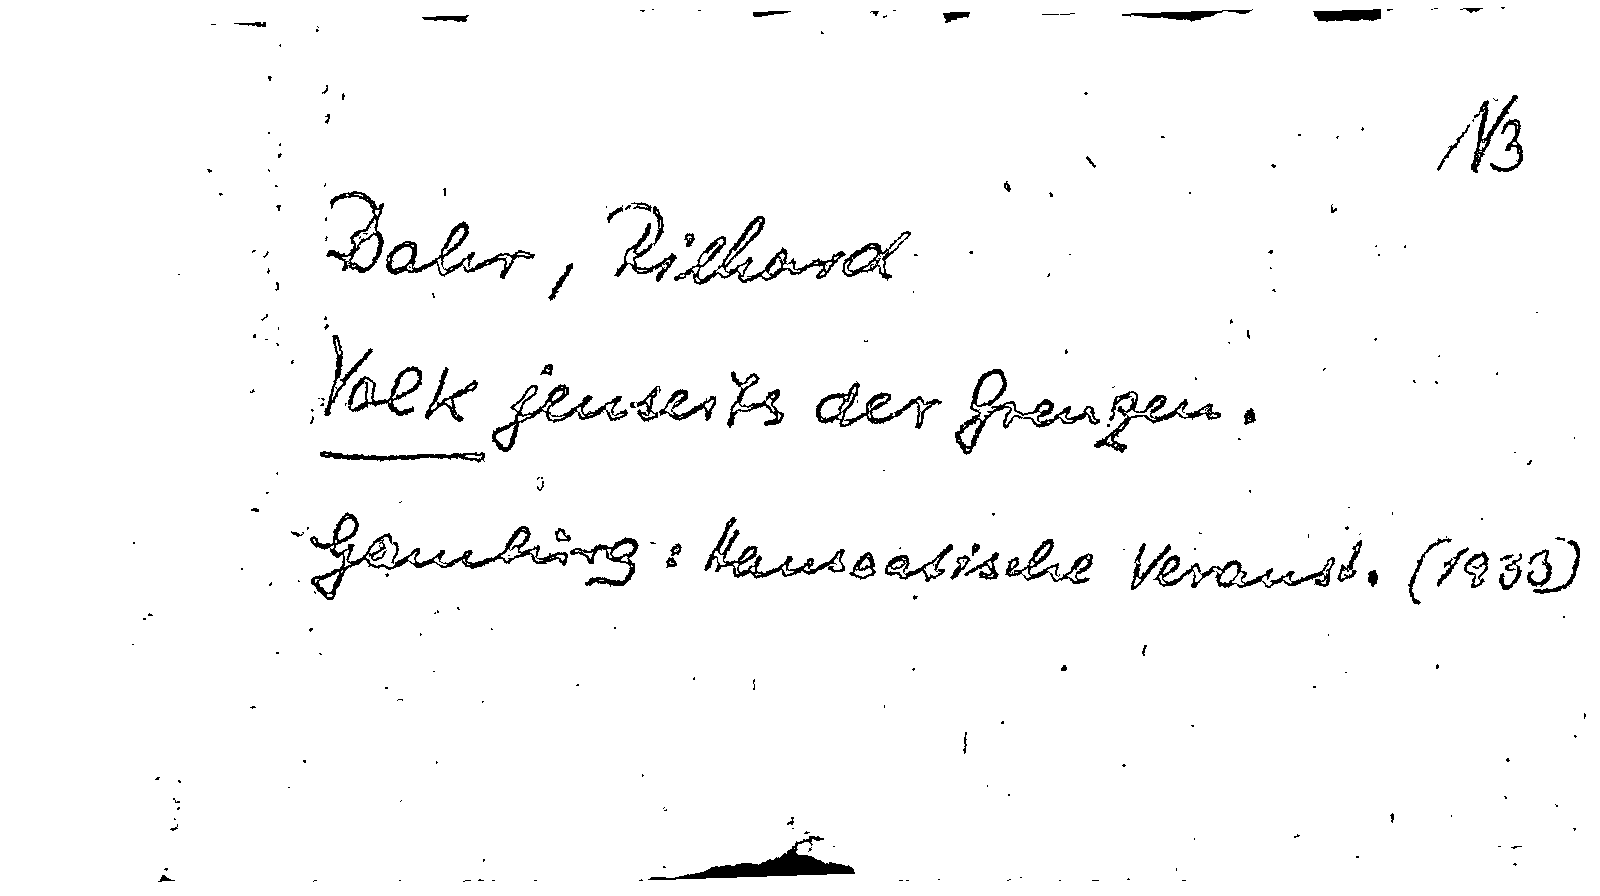 N3
Bahr, Richard
Volk jenseits der Grenzen.
Hamburg: Hanseatische Veranst. (1933)